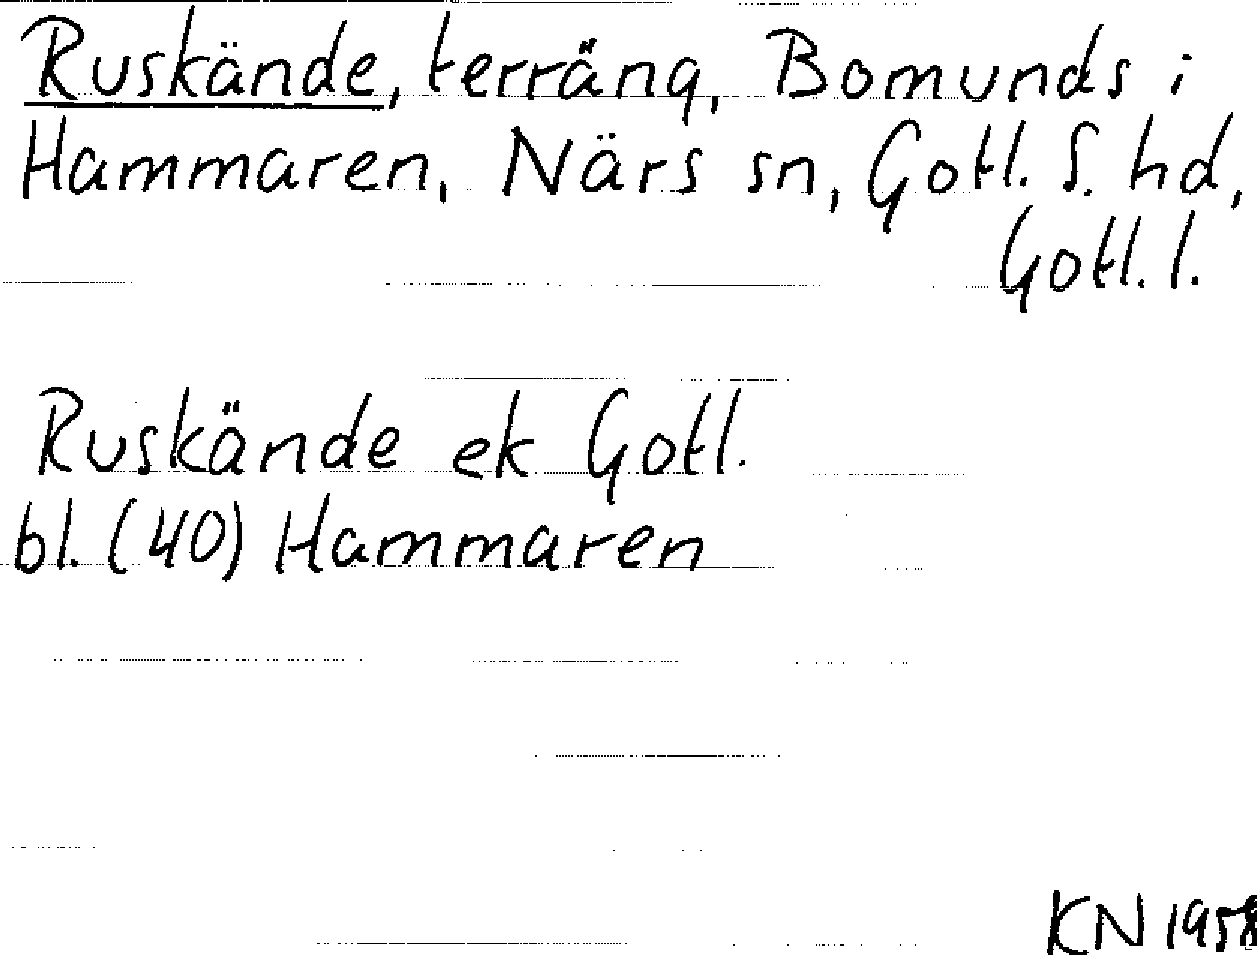 Ruskände, terräng, Bomunds i
Hammaren, Närs sn, Gotl. S. hd,
Gotl. l.
Ruskände ek Gotl.
bl. (40) Hammaren
KN 1958